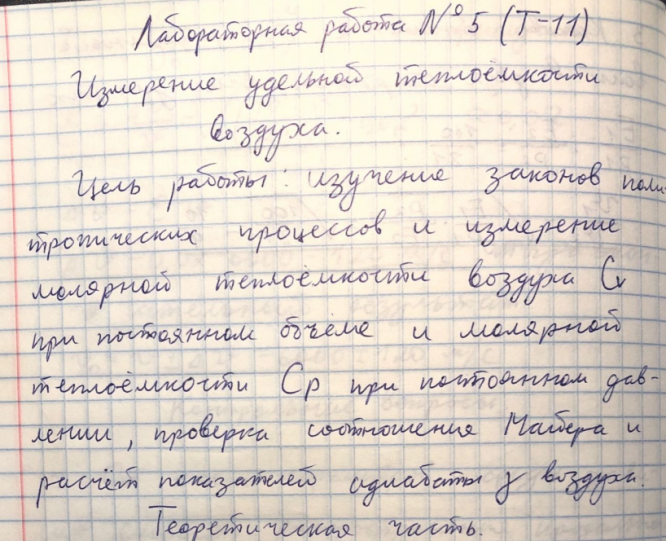 Лабораторная работа № 5 (Т-11)
Измерение удельной теплоёмкости
воздуха.
Цель работы: изучение законов поли-
тропических процессов и измерение
молярной теплоёмкости воздуха Cv
при постоянном объёме и молярной
теплоёмкости Cp при постоянном дав-
лении, проверка соотношения Майера и
расчёт показателей адиабаты γ воздуха.
Теоретическая часть.